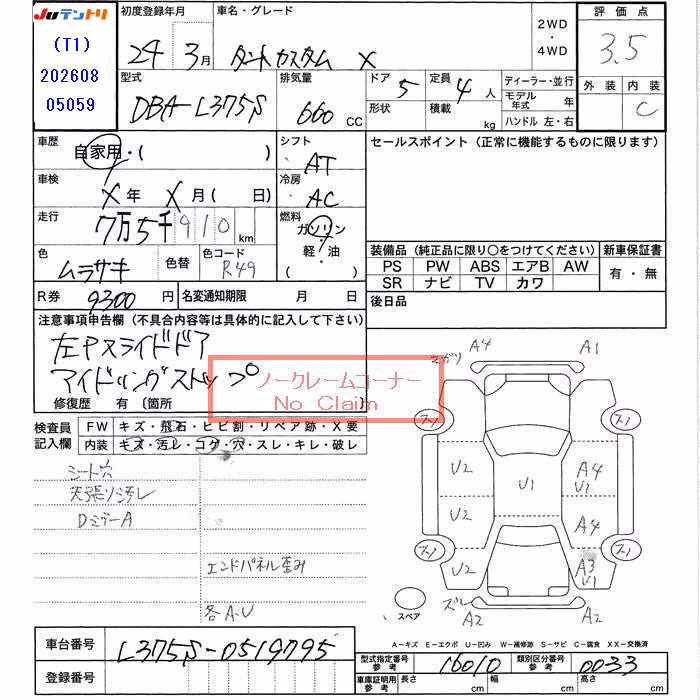 JUテントリ
(T1)
202608
05059
初度登録年月
車名・グレード
24年 3月
タントカスタム X
2WD
・
4WD
評価点
3.5
外装 内装
C
型式
DBA-L375S
排気量
660 CC
ドア 5
形状
定員 4人
積載 kg
ディーラー・並行
モデル年式 年
ハンドル 左・右
車歴
自家用・( )
シフト
AT
車検
X年 X月( 日)
冷房
AC
走行
7万5千910km
燃料
ガソリン
・
軽・油
( )
色
ムラサキ
色替
色コード
R49
R券 9300円
名変通知期限 月 日
セールスポイント (正常に機能するものに限ります)
装備品 (純正品に限り○をつけてください)
PS PW ABS エアB AW
SR ナビ TV カワ
新車保証書
有・無
後日品
注意事項申告欄 (不具合内容等は具体的に記入して下さい)
左Pスライドドア
アイドリングストップ
ノークレームコーナー
No Claim
修復歴 有 (箇所 )
検査員
記入欄
FW キズ・飛石・ヒビ割・リペア跡・X要
内装 キズ・汚レ・コゲ・穴・スレ・キレ・破レ
シート穴
天張リ汚レ
DミラーA
エンドパネル歪み
各A・U
A4
A1
スリ
スリ
U2
U2
U2
U1
A4
U1
A4
A3
U1
スリ
スリ
スペア
ズレ
A2
A2
A-キズ E-エクボ U-凹み W-補修跡 S-サビ C-腐食 XX-交換済
車台番号 L375S-0519795
登録番号
型式指定番号
参考
16010
類別区分番号
参考
0033
車庫証明用
参考
長さ cm 幅 cm 高さ cm